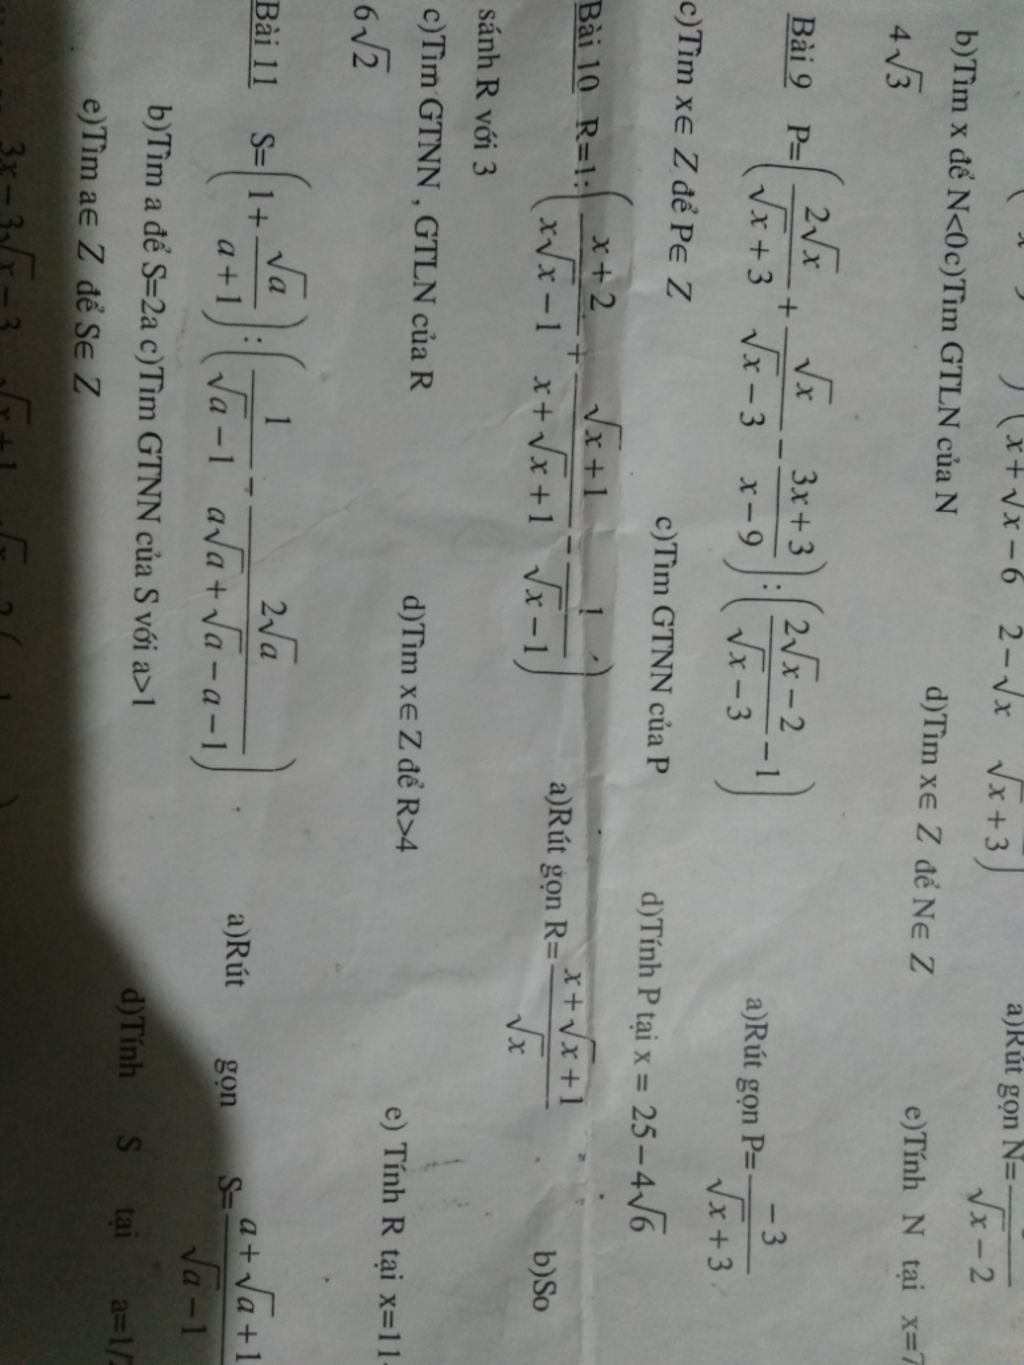 x + √x − 6   2 − √x   √x + 3 )   a)Rút gọn N= / (√x − 2)
b)Tìm x để N<0c)Tìm GTLN của N   d)Tìm x∈ Z để N∈ Z   e)Tính N tại x=7
4√3
Bài 9   P= ( 2√x / (√x + 3) + √x / (√x − 3) − (3x + 3) / (x − 9) ) : ( (2√x − 2) / (√x − 3) − 1 )   a)Rút gọn P= −3 / (√x + 3)
c)Tìm x∈ Z để P∈ Z   c)Tìm GTNN của P   d)Tính P tại x = 25 − 4√6
Bài 10   R=1: ( (x + 2) / (x√x − 1) + (√x + 1) / (x + √x + 1) − 1 / (√x − 1) )   a)Rút gọn R= (x + √x + 1) / √x   b)So
sánh R với 3
c)Tìm GTNN , GTLN của R   d)Tìm x∈ Z để R>4   e) Tính R tại x=11-
6√2
Bài 11   S= ( 1 + √a / (a + 1) ) : ( 1 / (√a − 1) − 2√a / (a√a + √a − a − 1) )   a)Rút gọn S= (a + √a + 1) / (√a − 1)
b)Tìm a để S=2a c)Tìm GTNN của S với a>1   d)Tính S tại a=1/
e)Tìm a∈ Z để S∈ Z
3x − 3√x − 3   √x + 1